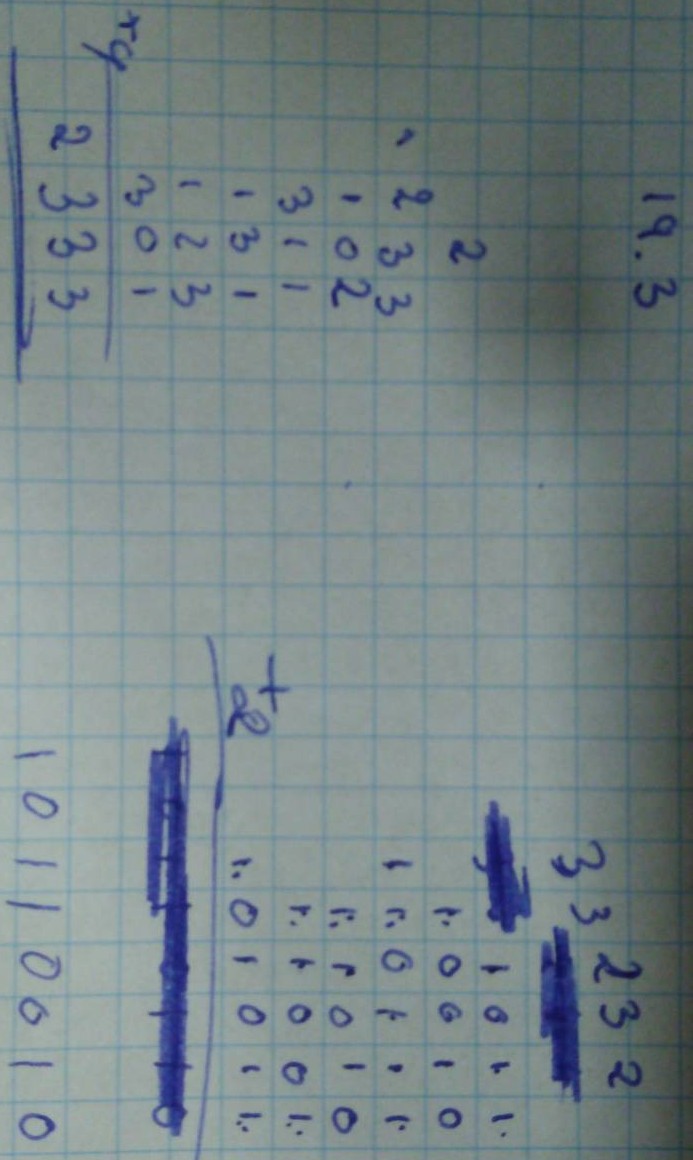 19.3
2
2 3 3
1 0 2
3 1 1
1 3 1
1 2 3
3 0 1
+4
2 3 3 3
3 3 2 3 2
1 0 1 1
1 0 0 1 0
1 1 0 1 1 1
1 1 0 1 0
1 1 0 0 1
1 0 1 0 1 1
+2
1 0 1 1 0 0 1 0